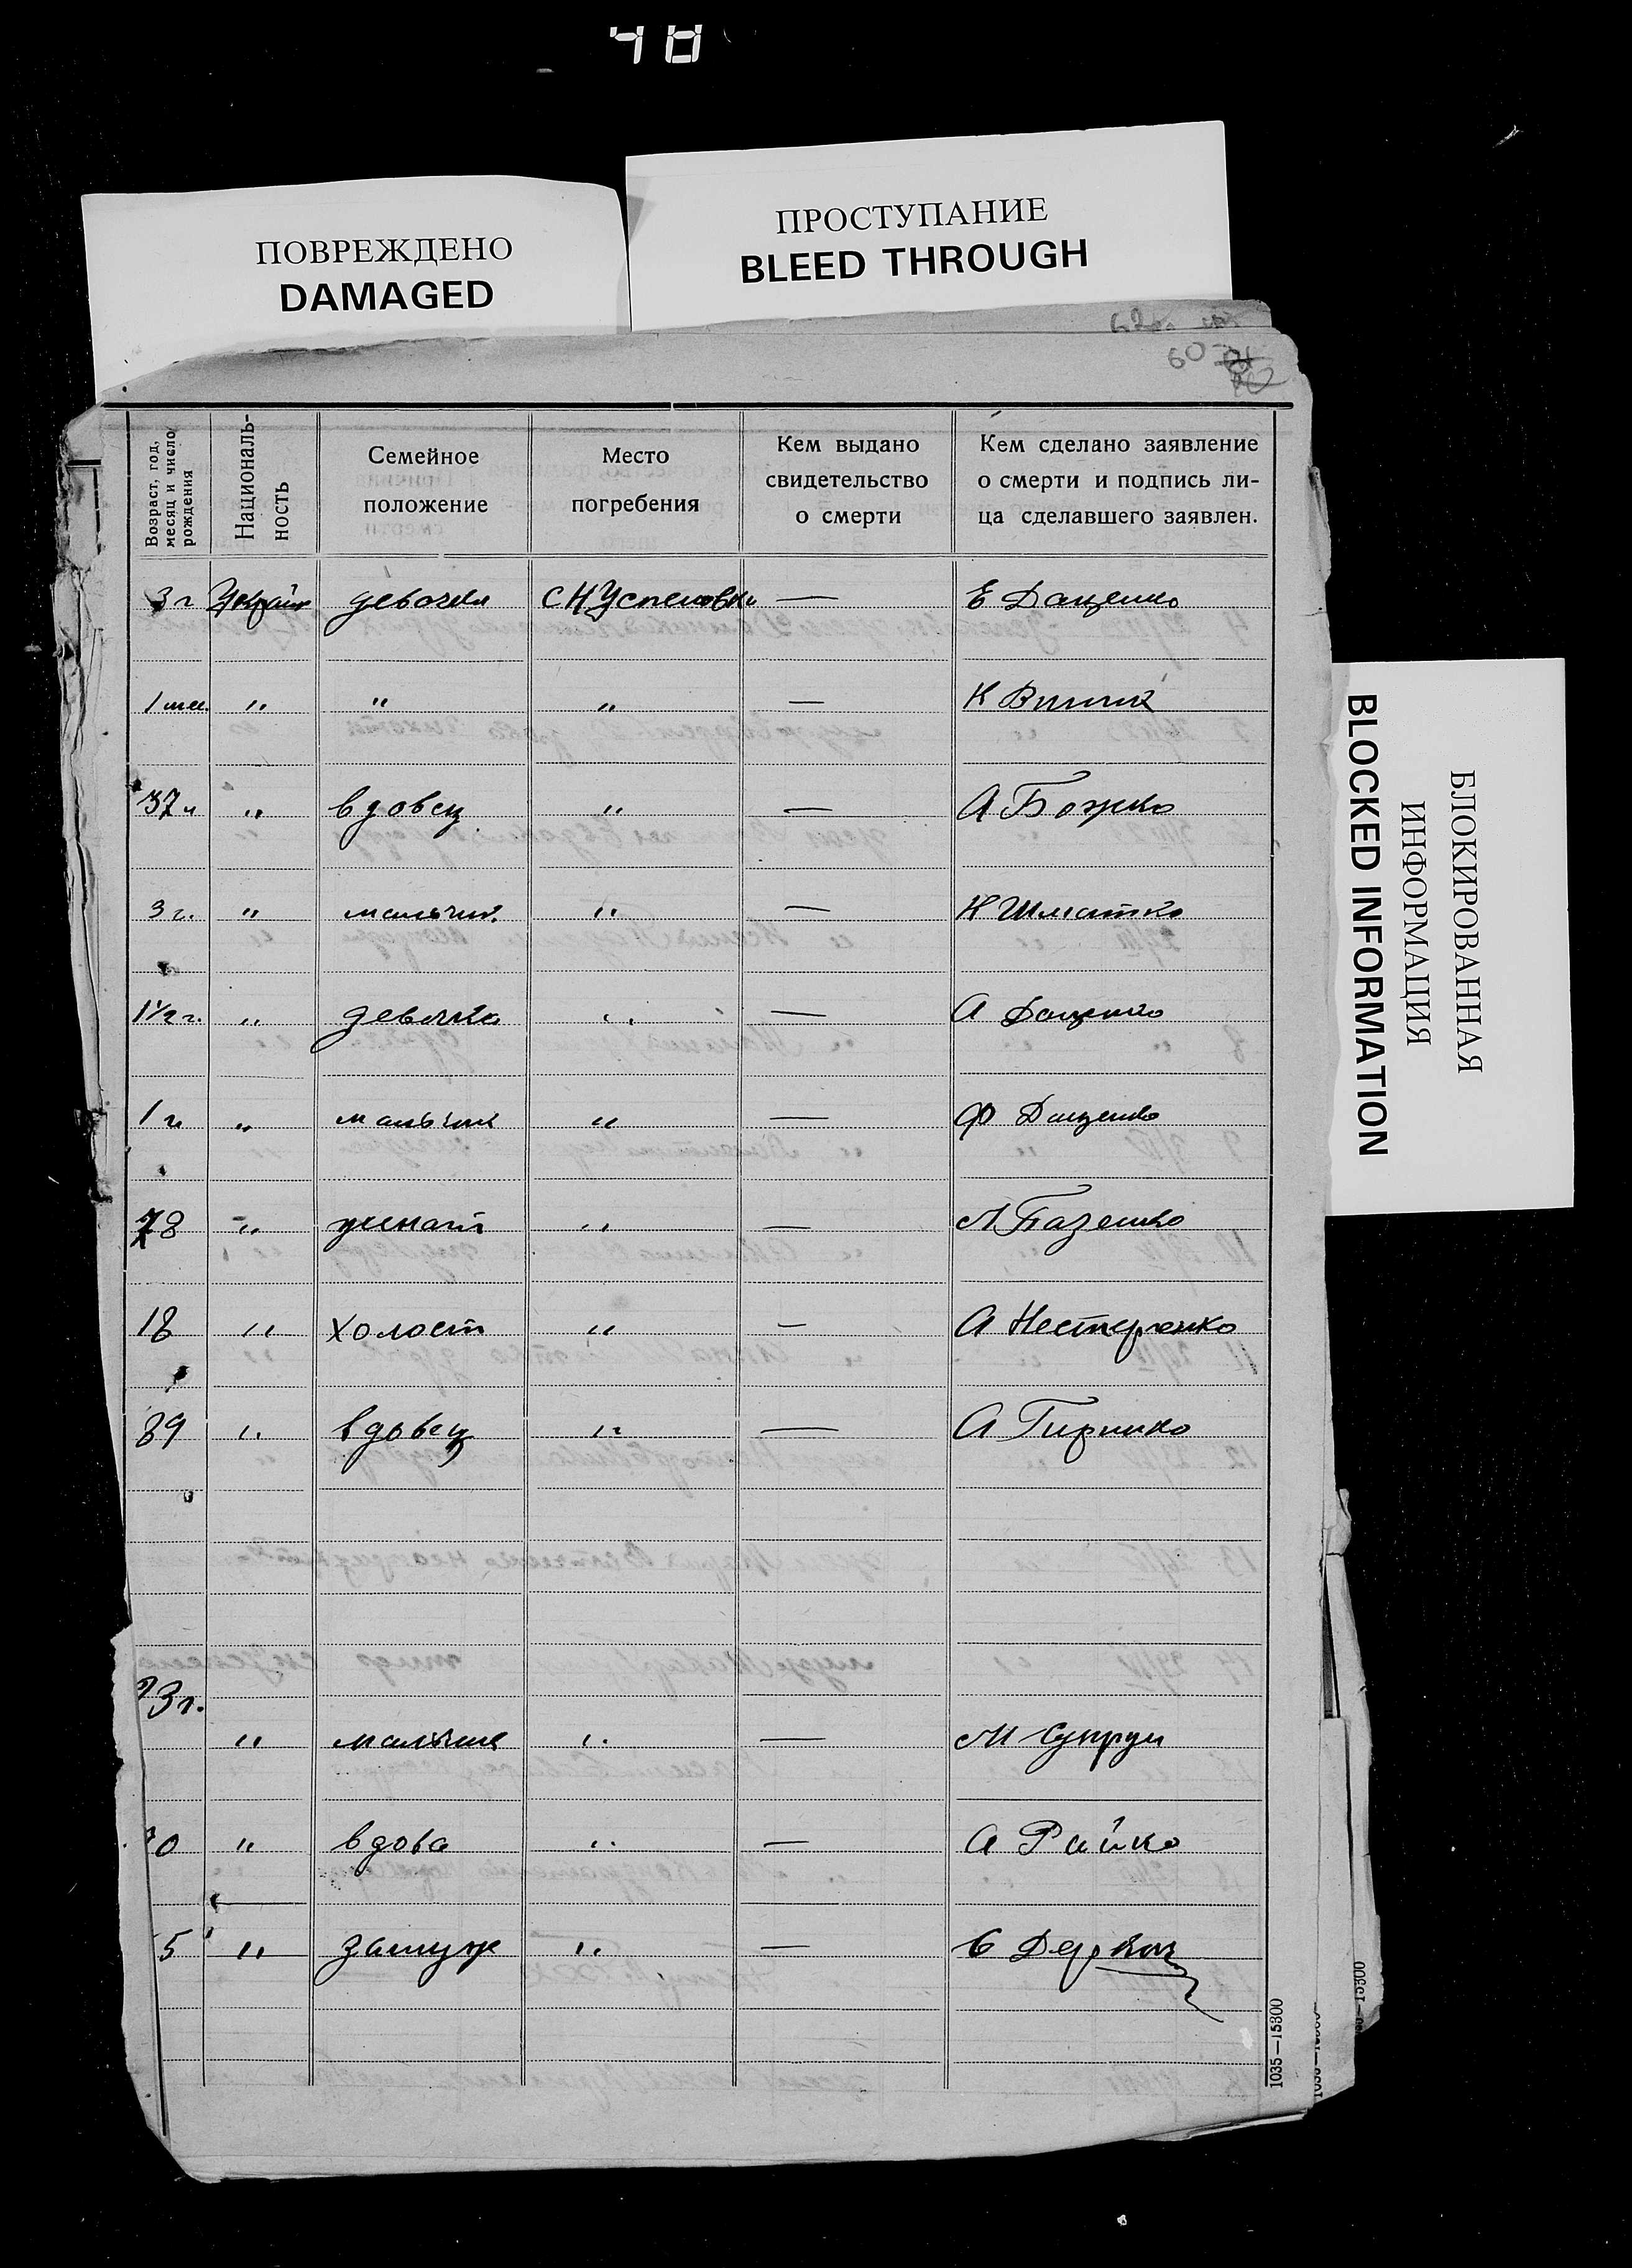 48
ПОВРЕЖДЕНО
DAMAGED
ПРОСТУПАНИЕ
BLEED THROUGH
60
Возраст, год, месяц и число рождения
Националь-
ность
Семейное
положение
Место
погребения
Кем выдано
свидетельство
о смерти
Кем сделано заявление
о смерти и подпись ли-
ца сделавшего заявлен.
3 г Украин девочка С Н Успеновка — Е Даценко
1 мес. " " " — К
37 " вдовец " — А Божко
3 г. " мальчик " — К Шматко
1 1/2 г. " девочка " — А Даценко
1 г " мальчик " — Ф Даценко
78 " женат " — Базенко
18 " холост " — А Нестеренко
89 " вдовец " — А
3 г.
" мальчик " — М Супрун
0 " вдова " — А Райко
5 " замуж " — Деркач
1035—15300
БЛОКИРОВАННАЯ
ИНФОРМАЦИЯ
BLOCKED INFORMATION